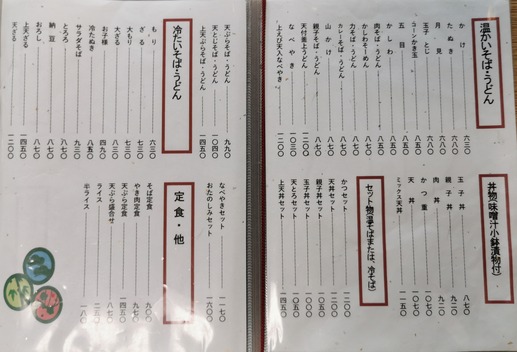 温かいそば・うどん
かけ 六三〇
たぬき 六八〇
月見 六八〇
玉子とじ
コーンかき玉
五目
かしわ
かしわそーめん
肉そば・うどん
力そば・うどん
カレーそば・うどん
山かけ
親子そば・うどん
天付釜上うどん
なべやき 一〇三〇
上えび天入なべやき
丼物(味噌汁小鉢漬物付)
玉子丼 八七〇
親子丼 九二〇
肉丼 九二〇
かつ重 一〇七〇
天丼 一〇七〇
ミックス天丼 一一五〇
セット物(温そばまたは、冷そば)
かつセット 一二〇〇
天丼セット 一二〇〇
親子丼セット 一〇五〇
玉子丼セット 一〇〇〇
天とろセット
上天丼セット 一四五〇
天ぷらそば・うどん 九九〇
天とじそば・うどん 一〇四〇
上天ぷらそば・うどん 一四五〇
冷たいそば・うどん
もり 六三〇
ざる 七三〇
大もり 七三〇
大ざる 八三〇
お子様 四九〇
冷たぬき 八五〇
サラダそば 九三〇
とろろ 八七〇
納豆 八七〇
おろし 八七〇
上天ざる 一四五〇
天ざる 一二〇〇
なべやきセット 一一七〇
おたのしみセット 一六〇〇
定食・他
そば定食 九〇〇
やき肉定食 九七〇
天ぷら定食 一四五〇
天ぷら盛合せ 八七〇
ライス 二五〇
半ライス 一八〇